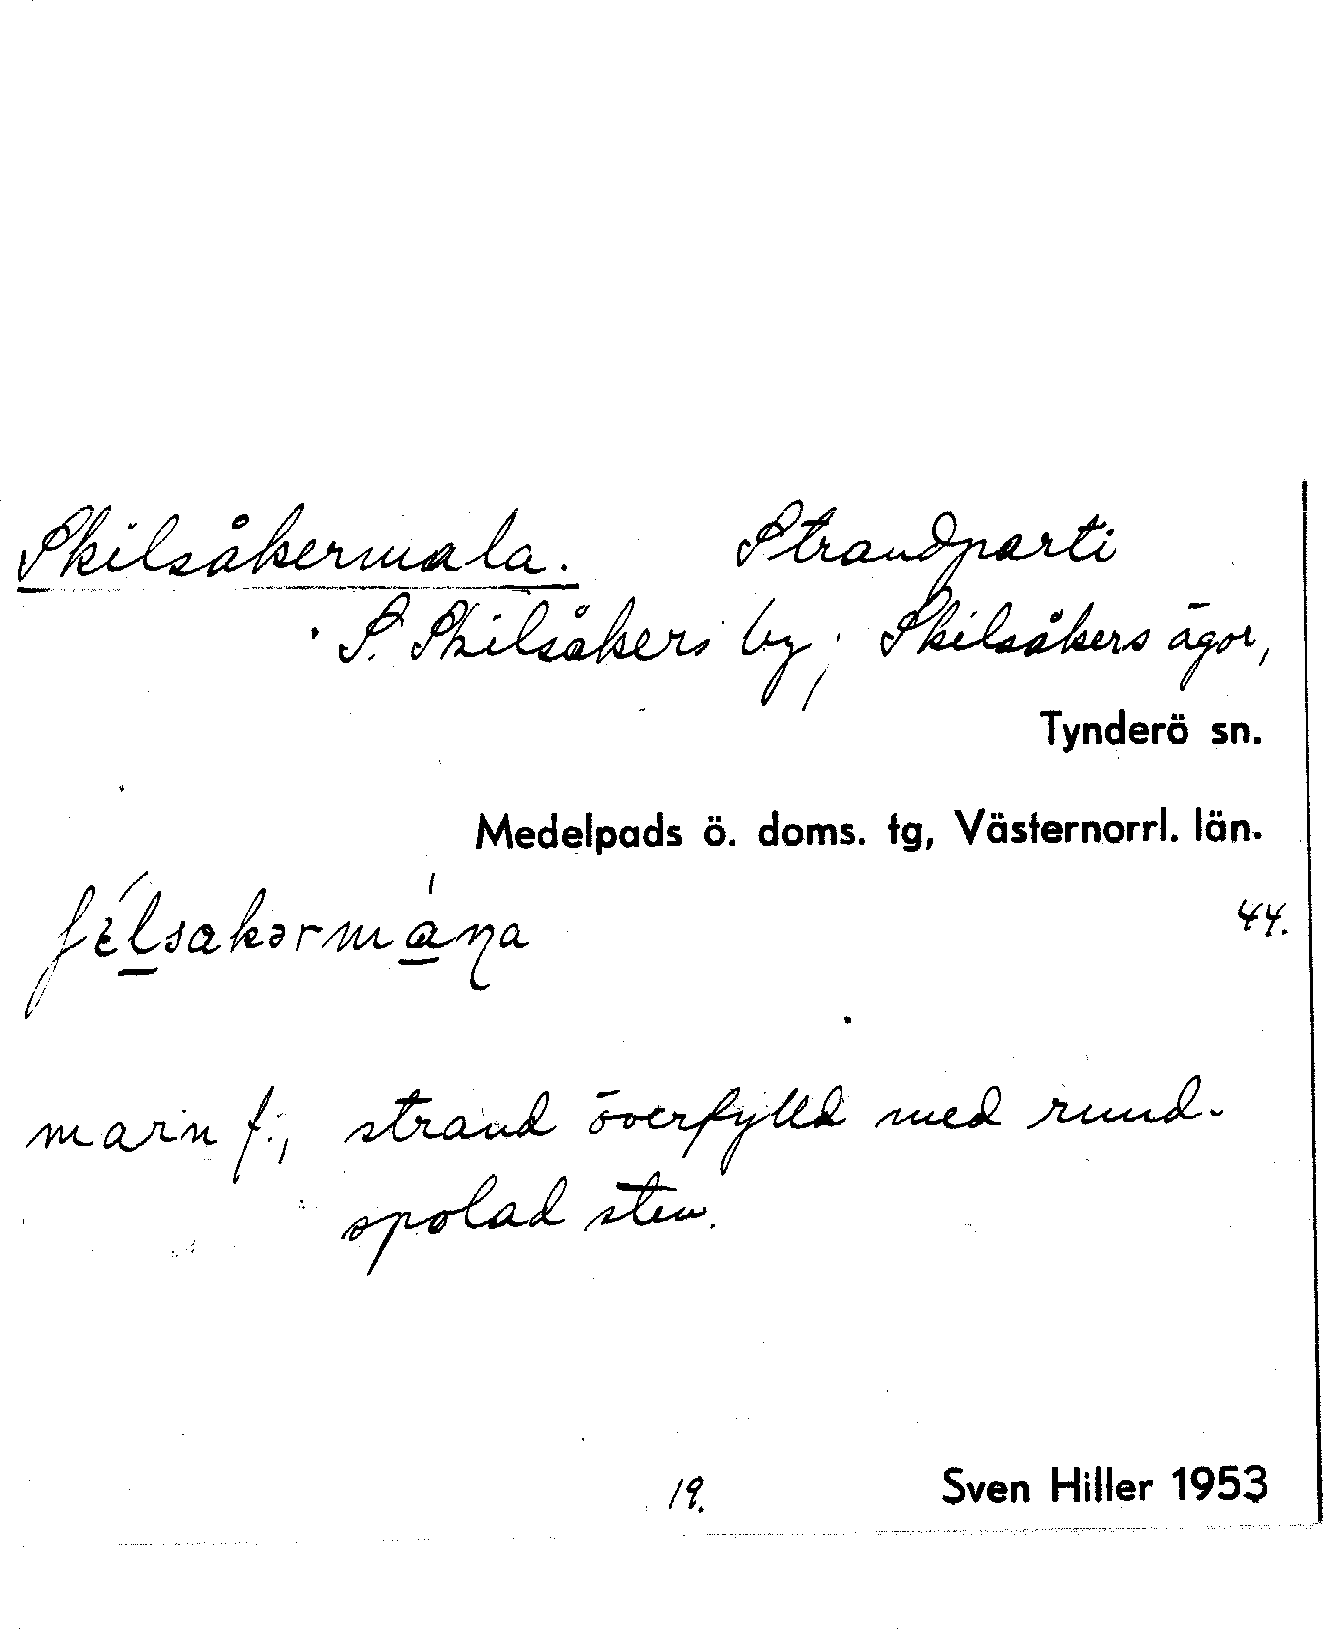 Skilsåkermala. Strandparti
S. Skilsåkers by; Skilsåkers ägor,
Tynderö sn.
Medelpads ö. doms. tg, Västernorrl. län.
44.
marn f.; strand överfylld med rund-
spolad sten.
19. Sven Hiller 1953